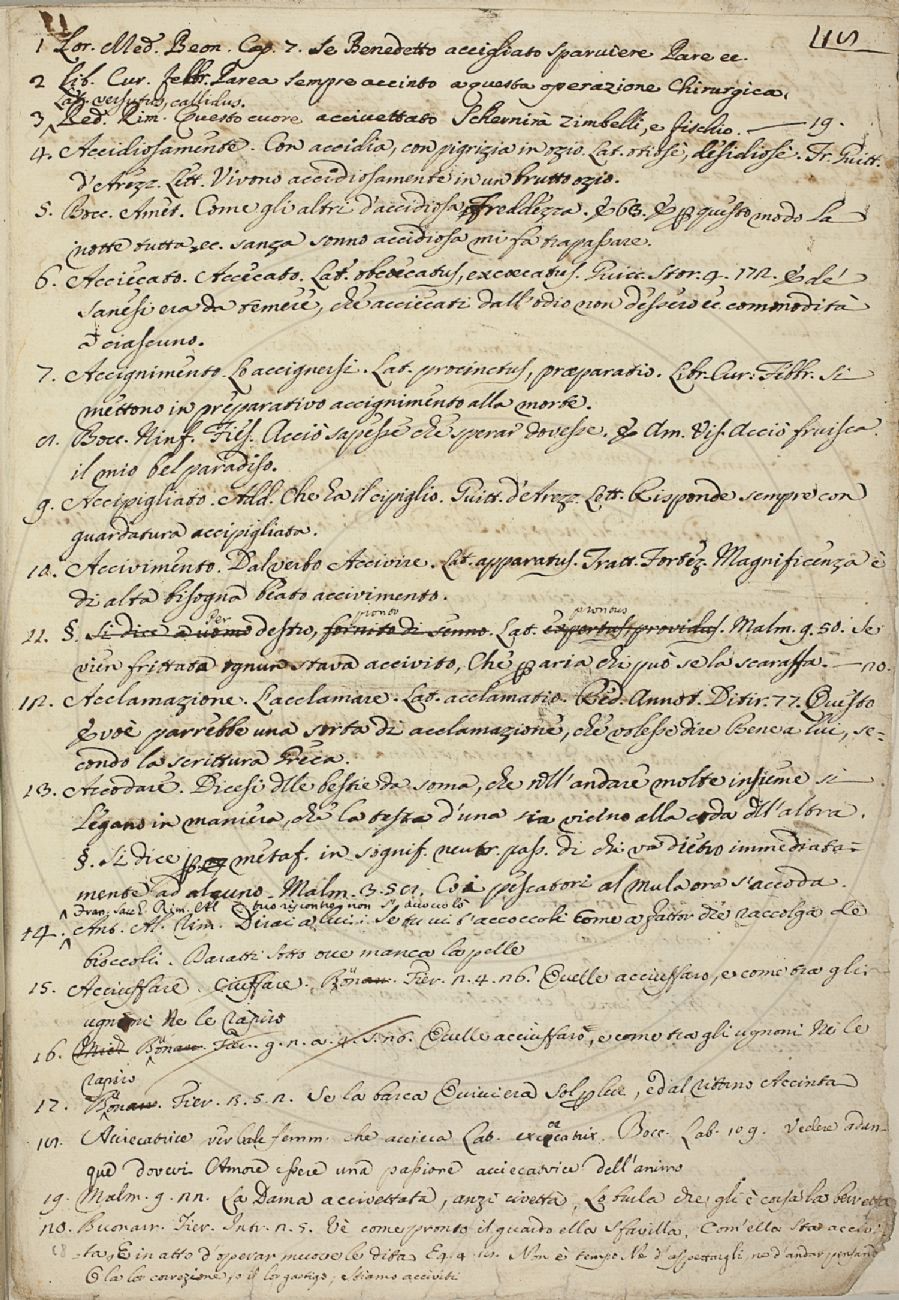 1 Lor. Med. Beon. Cap. 7. Se Benedetto accigliato sparviere Pare ec.
2 Lib. Cur. Febbr. Parea sempre accinto a questa operazione Chirurgica.
Lat. versutus, callidus.
3 Red. Rim. Questo cuore accivettato Schernirà zimbelli, e fischio. — 19.
4. Accidiosamente. Con accidia, con pigrizia in ozio. Lat. otiosè, desidiosè. Fr. Guitt.
d'Arezz. Lett. Vivono accidiosamente in un brutto ozio.
5. Bocc. Amet. Come gli altri d'accidiosa freddezza. E 63. E per questo modo la
notte tutta ec. sanza sonno accidiosa mi fa trapassare.
6. Acciecato. Accecato. Lat. obcoecatus, excoecatus. Guicc. Stor. 4. 172. E de'
Sanesi era da temere, che acciecati dall'odio non dessero ec. commodità
a ciascuno.
7. Accignimento. Lo accignersi. Lat. procinctus, præparatio. Libr. Cur. Febbr. Si
mettono in preparativo accignimento alla morte.
8. Bocc. Ninf. Fies. Acciò sapesse che sperar dovesse. E Am. Vis. Acciò fruisca
il mio bel paradiso.
9. Accipigliato. Add. Che ha il cipiglio. Guitt. d'Arezz. Lett. Risponde sempre con
guardatura accipigliata.
10. Accivimento. Dal verbo Accivire. Lat. apparatus. Tratt. Fortez. Magnificenza è
di alta bisogna beato accivimento.
Per pronto promus
11. §. Si dice a uomo destro, fornito di senno. Lat. expertus, providus. Malm. 9. 50. Se
vien frittata ognun stava accivito, Che per aria chi può se la scaraffa. — 20.
12. Acclamazione. L'acclamare. Lat. acclamatio. Red. Annot. Ditir. 77. Questo
Evoè parrebbe una sorta di acclamazione, che volesse dire Bene a lui, se=
condo la scrittura Greca.
13. Accodare. Dicesi delle bestie da soma, che nell'andare molte insieme si
legano in maniera, che la testa d'una sia vicino alla coda dell'altra.
§. Si dice per metaf. in signif. neutr. pass. di chi va dietro immediata=
mente ad alcuno. Malm. 3. 58. Coi pescatori al mula ora s'accoda.
14. Ant. Al. Rim. Dirai a lui: Se tu vi t'accoccoli Come a fattor die raccolga de
broccoli. Baratti sotto ove manca la pelle
15. Acciuffare. Ciuffare. Buonar. Fier. 2. 4. 26. Quelle acciuffaro, e come tra gli
ugnoni Ne le rapiro
16. Buonar. Fier. g. 2. a. 4. s. 26. Quelle acciuffarò, e come tra gli ugnoni Ne le
rapiro
17. Buonar. Fier. 2. 5. 2. Se la barca Quivi era Sol per lui, ed al vittino Accinta
18. Acciecatrice verbale femm. che accieca Lat. excæcatrix. Bocc. Lab. 109. Vedere adun-
que dovevi Amore essere una passione acciecatrice dell'animo
19. Malm. 9. 22. La Dama accivettata, anzi civetta, Lo burla che gli è corsa la berretta
20. Buonarr. Fier. Intr. 2. 5. Ve' come pronto il guardo ella sfavilla, Com'ella sta accivi-
ta, E in atto d'operar muove le dita. Eq. 4. 18. Non è tempo Ne d'aspettargli, ne d'andar pensando
O la lor correzione, o il lor gastigo, stiamo acciviti